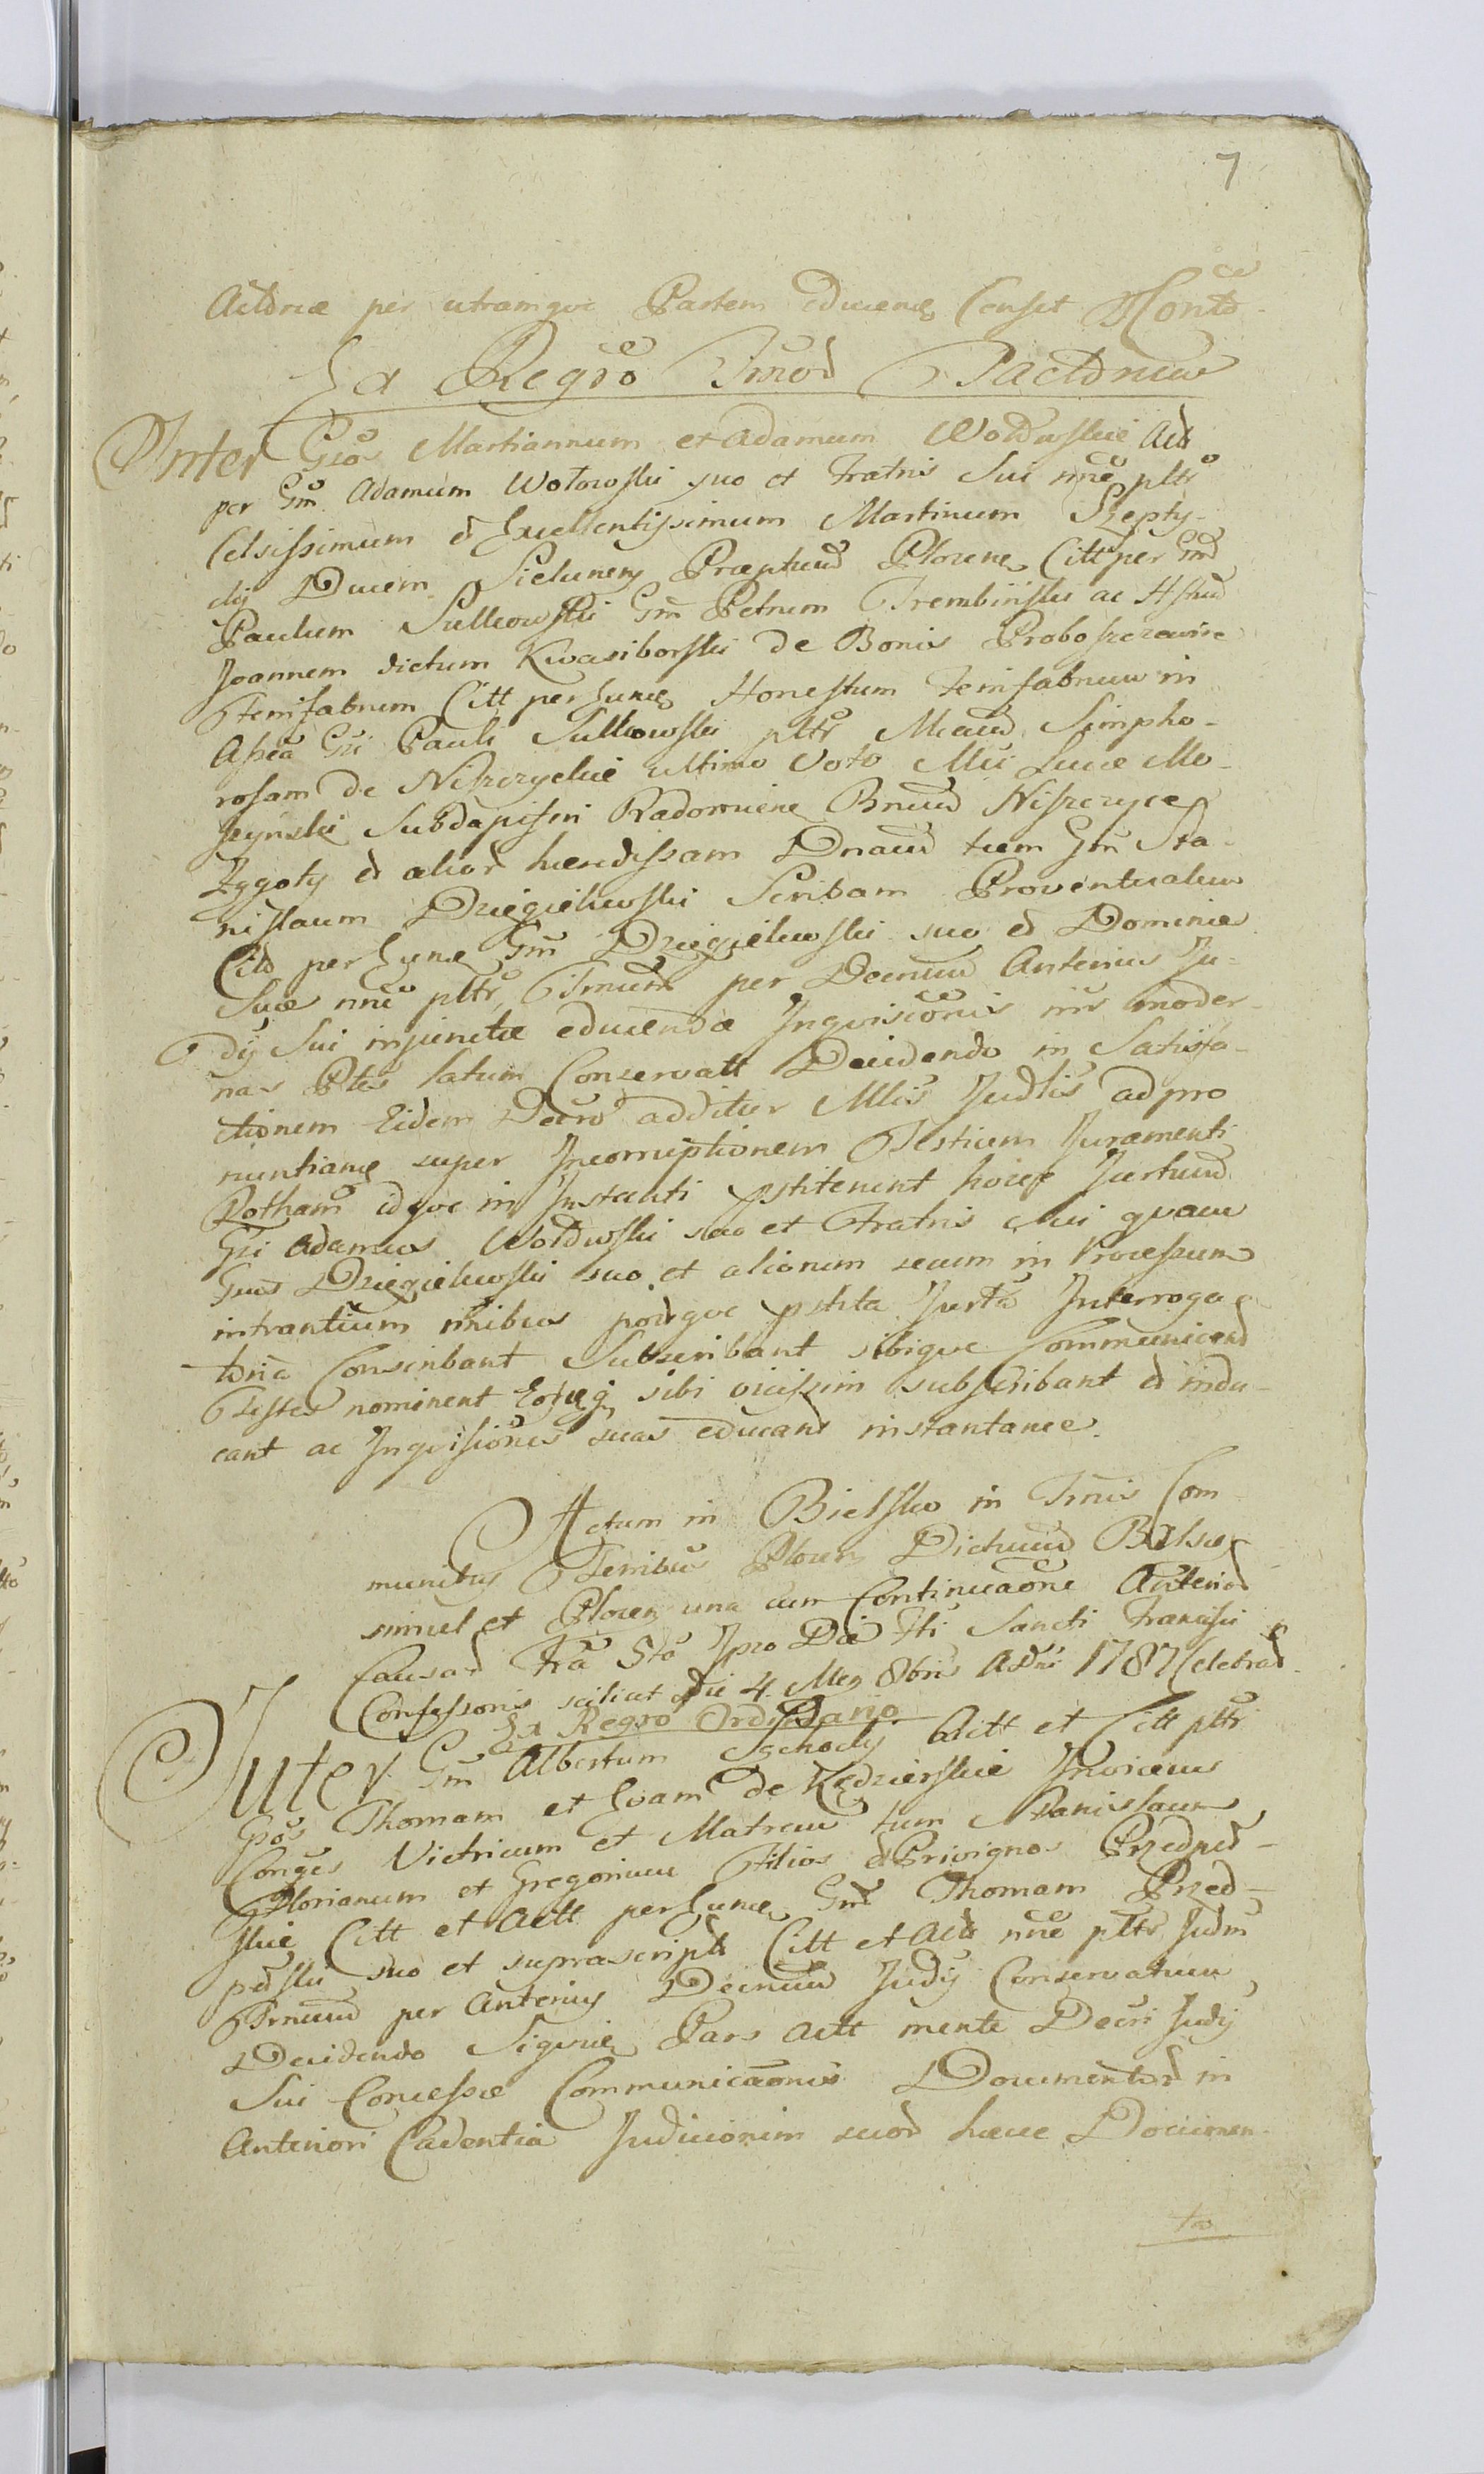 7
Actoreæ per utramque Partem educend Censet Cont̃d
Ex Regrõ Trnod Tactorum
Inter Gsõs Martiannum et Adamum Wołowskie Act
per Gm̃ Adamum Wołowski suo et Fratris Sui nñe pltr̃
Celsissimum et Excellentissimum Martinum Szepty-
cky Ducem Sielunens Præptum Plocens Citt per Gm̃
Paulum Sulkowski Gm̃ Petrum Trembinski ac Hstum
Joannem dictum Kwasiborski de Bonis Proboszczewice
Ferrifabrum Citt per eund Honestum Ferrifabrum in
Assẽa Gsi Pauli Sulkowski pltr̃ Mcam Simpho-
rosam de Niszczyckie ultimo Voto Mci Lucæ Mo-
szynski Subdapiferi Radomiens Bnum Niszczyce
Zggoty et alior hæredissam Dnam tum Gm̃ Sta-
nislaum Dzięgielewski Scribam Proventualem
Citt per eund Gm̃ Dzięgielewski suo et Dominæ
Suæ nñe pltr̃, Trnum per Decrum Anterius Ju-
dij Sui injunctæ educendæ Inqvisiõnis in moder-
nas Ptes latum Conservatt Decidendo in Satisfa-
ctionem Eidem Decro additur Mlis Judlis ad pro
nuntiand super Incorruptionem Testium Juramenti
Rotham idqve in Instanti pstitenent hocce Jurtum
Gsi Adamus Wołowski suo et Fratris Sui qvam
Gnus Dzięgielewski suo et aliorum secum in Processum
intrantium nnibus posqve pstita Jurta Interroga
toria Conscribant Subscribant sibiqve Communicent
Testes nominent Eosq sibi vicissim subscribant et indu-
cant ac Inqvisiones suas educant instantanee.
Actum in Bielsko in Trnis Com
munibus Terribus Plocen Dictum Belscen
simul et Plocen una cum Continuaõne Anterior
Causar Fra Sta Ipso Die Fti Sancti Francisci
Confessoris scilicet die 4 Mens 8bris A Dni 1787 Celebrat.
Ex Regro Ordinario
Inter Gm̃ Albertum Actt et Citt pltr̃
Gsõs Thomam et Evam de Kędzierskie Invicem
Conges Vietricum et Matrem tum Stanislaum
Florianum et Gregorium Filios et Privignos Przedpeł-
skie Citt et Actt per eund Gm̃ Thomam Przed-
pełski suo et suprascript Citt et Act nñe pltr̃ Judm
Trnum per Anterius Decrum Judij Conservatum
Decidendo Siqvid Pars Actt mente Decri Judij
Sui Concessæ Communicaõnis Documentor in
Anteriori Cadentia Judiciorum suor hæcce Documen-
ta